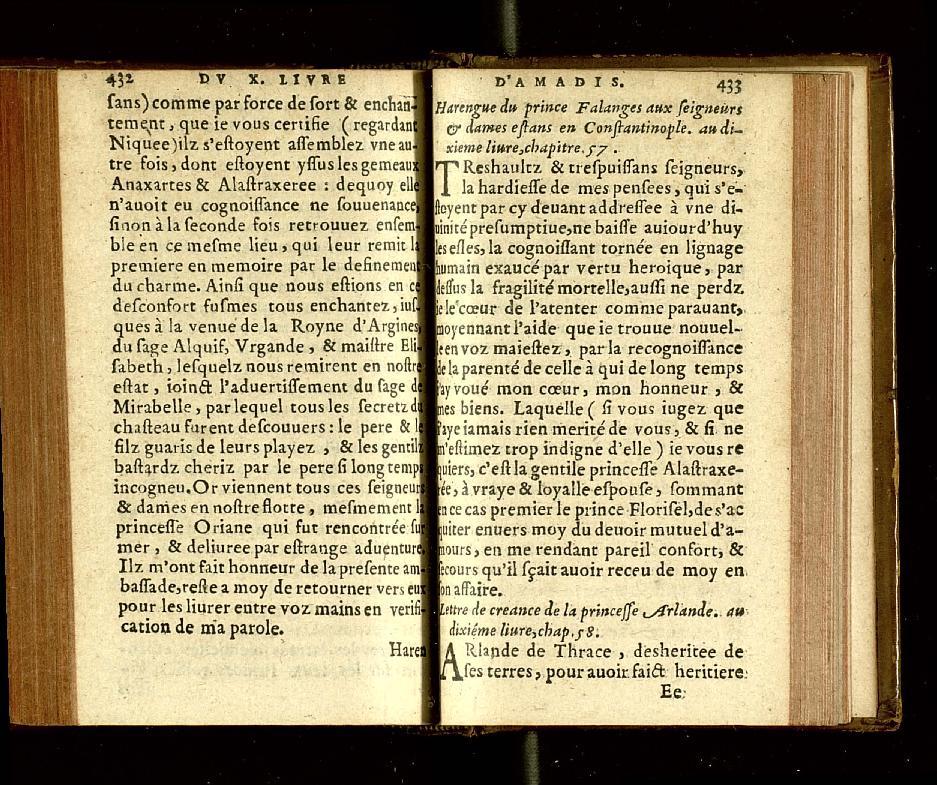 432 DV X. LIVRE
ſans) comme par force de ſort & enchan-
tement, que ie vous certifie (regardant
Niquee) ilz s'eſtoyent aſſemblez vne au-
tre fois, dont eſtoyent yſſus les gemeaux
Anaxartes & Alaſtraxeree : dequoy elle
n'auoit eu cognoiſſance ne ſouuenance,
ſinon à la ſeconde fois retrouuez enſem-
ble en ce meſme lieu, qui leur remit la
premiere en memoire par le definement
du charme. Ainſi que nous eſtions en ce
deſconfort fuſmes tous enchantez, iuſ-
ques à la venue de la Royne d'Argines,
du ſage Alquif, Vrgande, & maiſtre Eli-
ſabeth, leſquelz nous remirent en noſtre
eſtat, ioinct l'aduertiſſement du ſage de
Mirabelle, par lequel tous les ſecretz du
chaſteau furent deſcouuers : le pere & le
filz guaris de leurs playez, & les gentilz
baſtardz cheriz par le pere ſi long temps
incogneu. Or viennent tous ces ſeigneurs
& dames en noſtre flotte, meſmement la
princeſſe Oriane qui fut rencontrée ſur
mer, & deliuree par eſtrange aduenture.
Ilz m'ont fait honneur de la preſente am-
baſſade, reſte a moy de retourner vers eux
pour les liurer entre voz mains en verifi-
cation de ma parole.
Haren
D'AMADIS. 433
Harengue du prince Falanges aux ſeigneurs
& dames eſtans en Conſtantinople. au di-
xieme liure, chapitre. 57.
TReshaultz & treſpuiſſans ſeigneurs,
la hardieſſe de mes penſees, qui s'e-
ſtoyent par cy deuant addreſſee à vne di-
uinité preſumptiue, ne baiſſe auiourd'huy
les eſles, la cognoiſſant tornée en lignage
humain exaucé par vertu heroique, par
deſſus la fragilité mortelle, auſſi ne perdz
ie le cœur de l'atenter comme parauant,
moyennant l'aide que ie trouue nouuel-
le en voz maieſtez, par la recognoiſſance
de la parenté de celle à qui de long temps
i'ay voué mon cœur, mon honneur, &
mes biens. Laquelle (ſi vous iugez que
i'aye iamais rien merité de vous, & ſi ne
m'eſtimez trop indigne d'elle) ie vous re
quiers, c'eſt la gentile princeſſe Alaſtraxe-
rée, à vraye & loyalle eſpouſe, ſommant
en ce cas premier le prince Floriſel, de s'ac
quiter enuers moy du deuoir mutuel d'a-
mours, en me rendant pareil confort, &
ſecours qu'il ſçait auoir receu de moy en
ſon affaire.
Lettre de creance de la princeſſe Arlande. au
dixiéme liure, chap. 58.
ARlande de Thrace, desheritee de
ſes terres, pour auoir faict heritiere
Ee